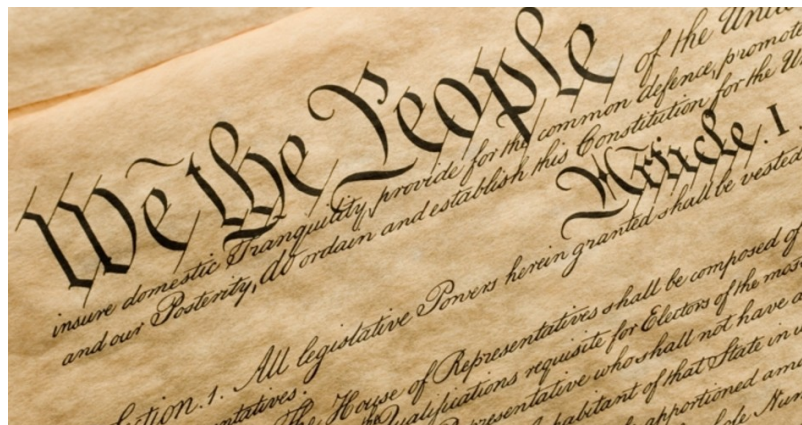 We the People of the Unite
insure domestic Tranquility, provide for the common defence, promote
and our Posterity, do ordain and establish this Constitution for the U
Article. I
ection. 1. All legislative Powers herein granted shall be vested
ntatives.
The House of Representatives shall be composed of
Qualifications requisite for Electors of the mos
presentative who shall not have a
habitant of that State in
apportioned am
ole Num